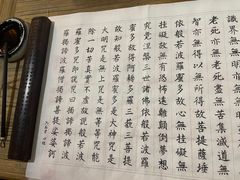 識界無無明亦無無明盡乃至無
老死亦無老死盡無苦集滅道無
智亦無得以無所得故菩提薩埵
依般若波羅蜜多故心無罣礙無
罣礙故無有恐怖遠離顛倒夢想
究竟涅槃三世諸佛依般若波羅
蜜多故得阿耨多羅三藐三菩提
故知般若波羅蜜多是大神咒是
大明咒是無上咒是無等等咒能
除一切苦真實不虛故說般若波
羅蜜多咒即說咒曰揭諦揭諦波
羅揭諦波羅僧揭諦菩提娑婆訶